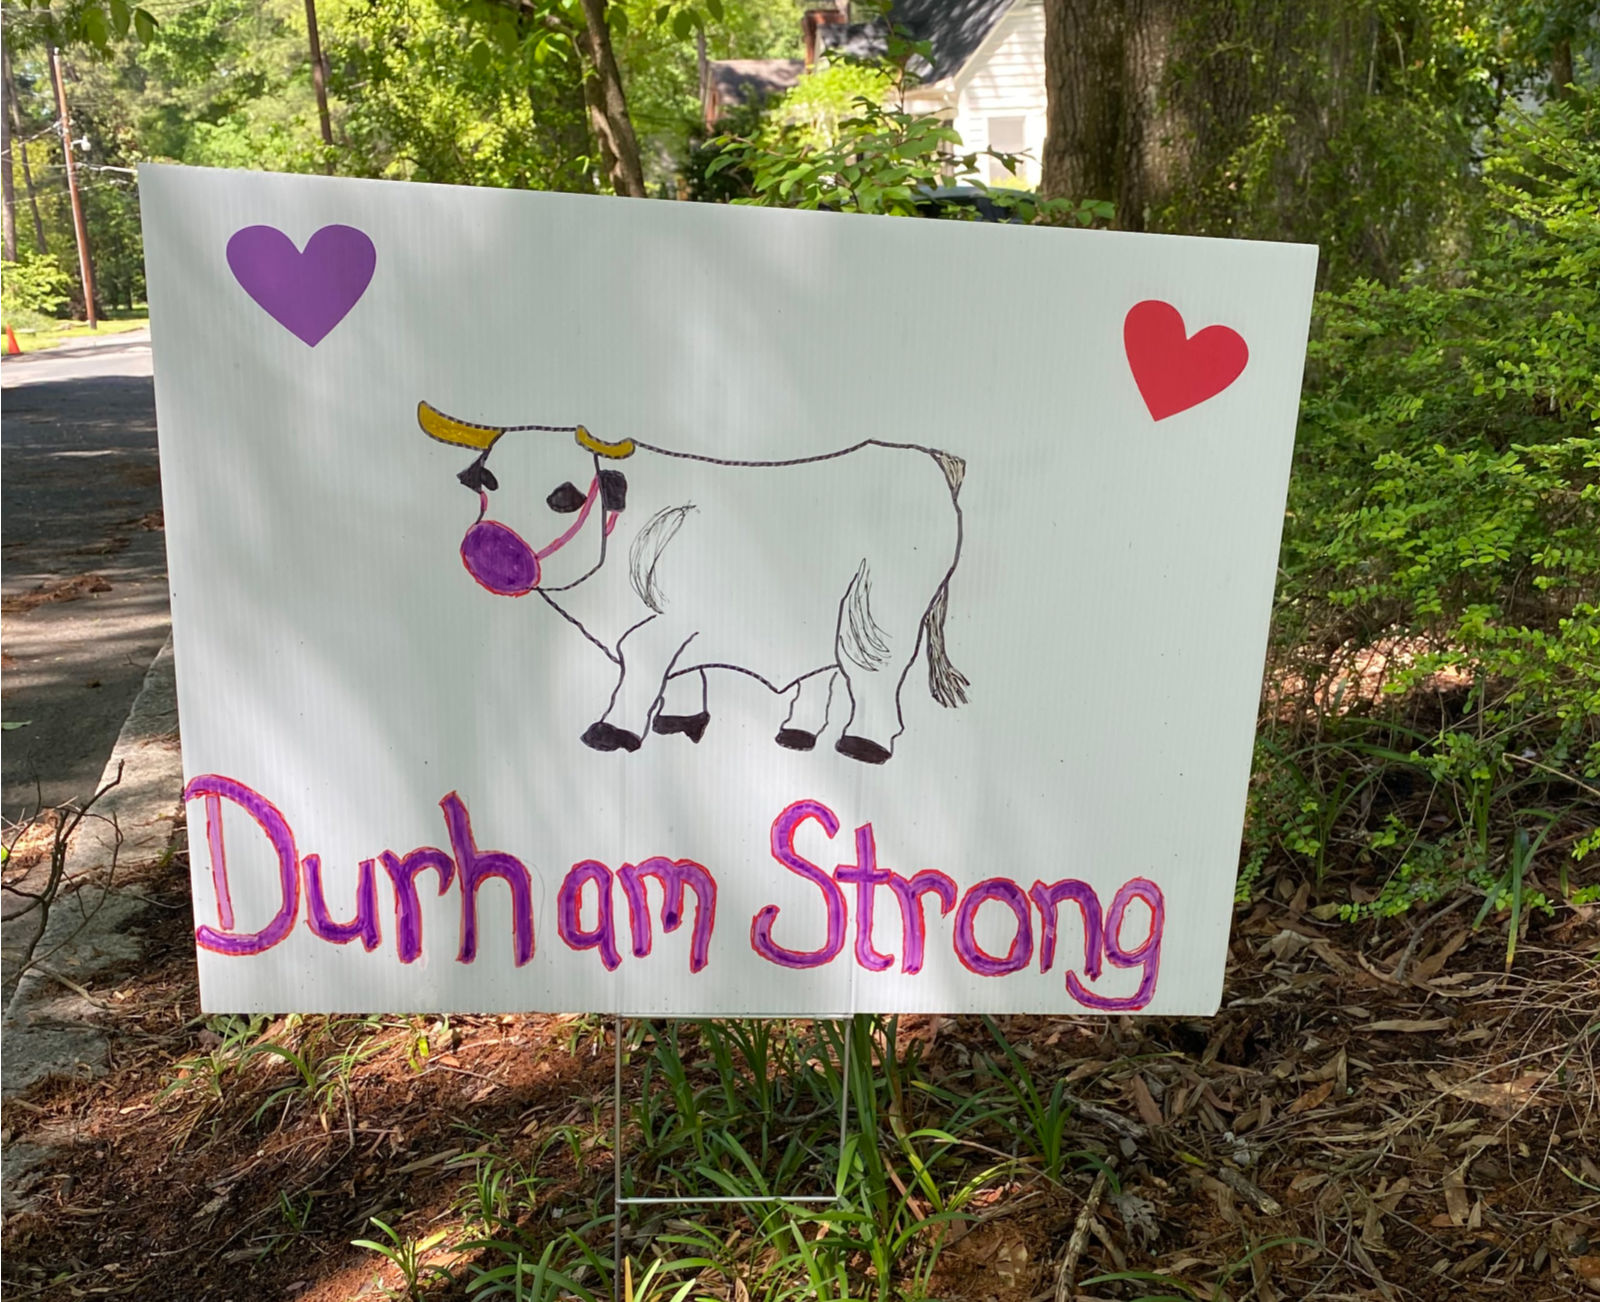 Durham Strong